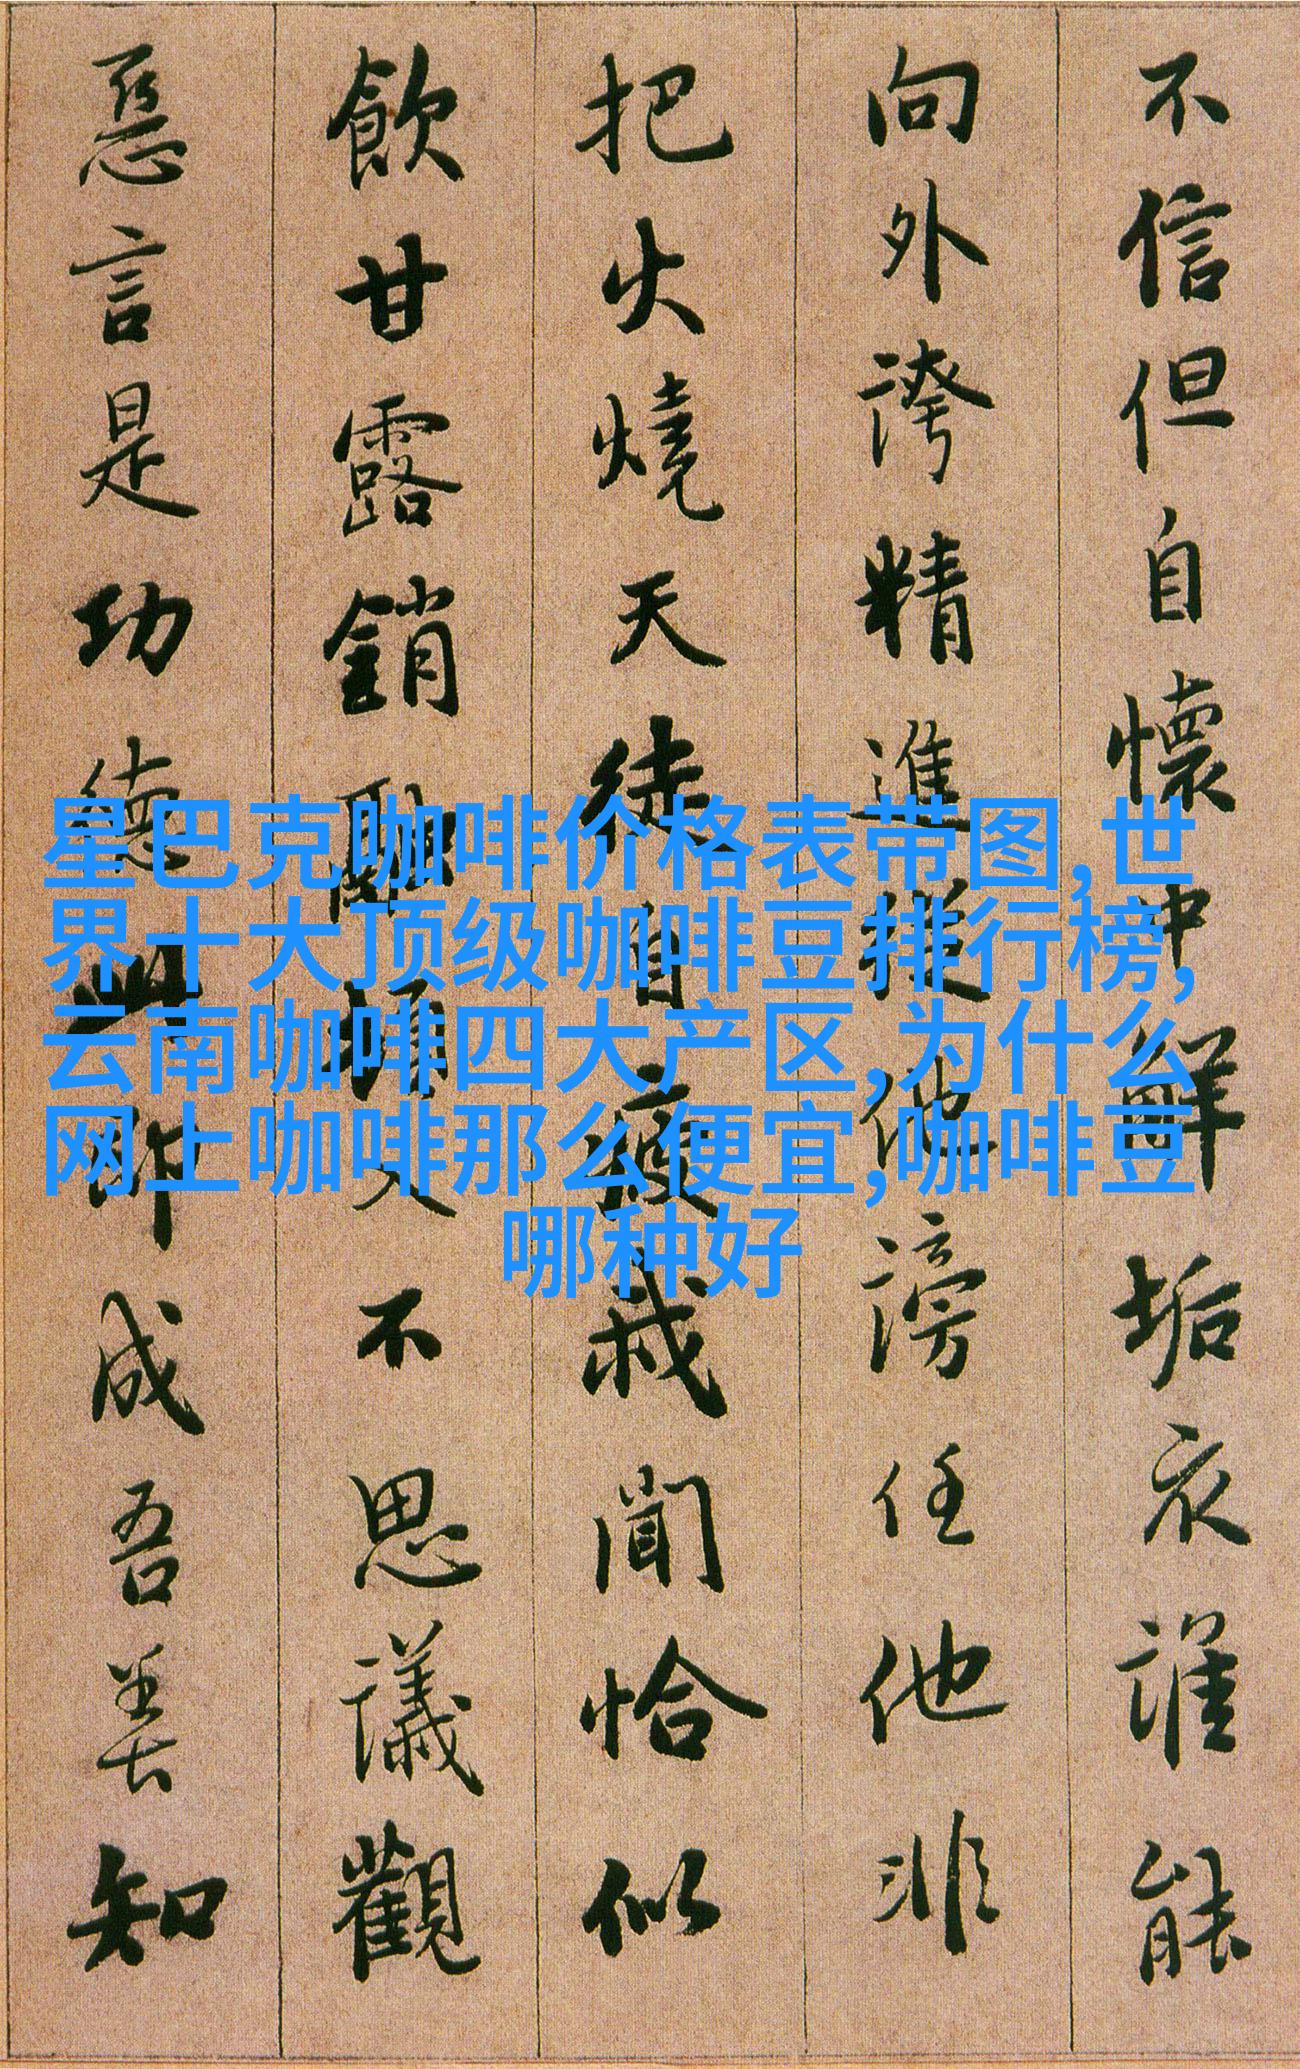 不信但自懷中解垢衣誰能
向外誇精進從他謗任他非
把火燒天徒自疲我聞恰似
飲甘露銷融頓入不思議觀
惡言是功德此即成吾善知
星巴克咖啡价格表带图,世
界十大顶级咖啡豆排行榜,
云南咖啡四大产区,为什么
网上咖啡那么便宜,咖啡豆
哪种好